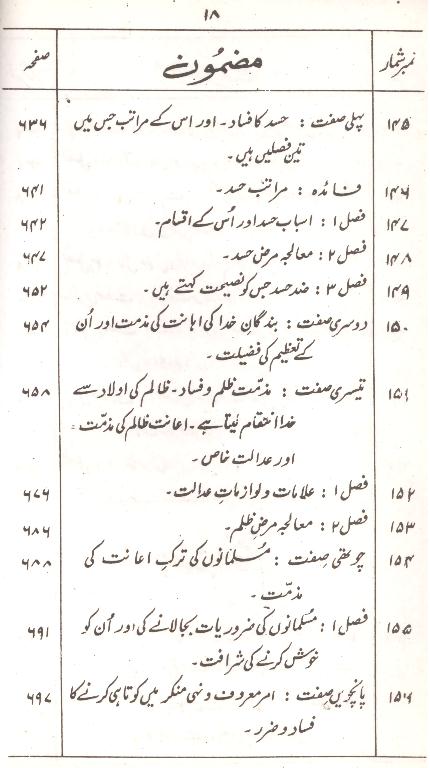 ۱۸
نمبر شمار مضمون صفحہ
۱۴۵ پہلی صفت : حسد کا فساد ۔ اور اس کے مراتب جس میں ۶۳۶
تین فصلیں ہیں۔
۱۴۶ فائدہ : مراتب حسد ۔ ۶۴۱
۱۴۷ فصل ۱ : اسباب حسد اور اُس کے اقسام۔ ۶۴۲
۱۴۸ فصل ۲ : معالجہ مرض حسد ۔ ۶۴۷
۱۴۹ فصل ۳ : ضد حسد جس کو نصیحت کہتے ہیں ۔ ۶۵۲
۱۵۰ دوسری صفت : بندگانِ خدا کی اہانت کی مذمت اور اُن ۶۵۴
کے تعظیم کی فضیلت ۔
۱۵۱ تیسری صفت : مذمّت ظلم و فساد ۔ ظالم کی اولاد سے ۶۵۸
خدا انتقام لیتا ہے ۔ اعانت ظالم کی مذمّت ۔
اور عدالتِ خاص ۔
۱۵۲ فصل ۱ : علامات و لوازماتِ عدالت ۔ ۶۷۶
۱۵۳ فصل ۲ : معالجہ مرضِ ظلم۔ ۶۸۶
۱۵۴ چوتھی صفت : مسلمانوں کی ترکِ اعانت کی ۶۸۸
مذمّت ۔
۱۵۵ فصل ۱ : مسلمانوں کی ضروریات بجا لانے کی اور اُن کو ۶۹۱
خوش کرنے کی شرافت ۔
۱۵۶ پانچویں صفت : امر معروف و نہی منکر میں کوتاہی کرنے کا ۶۹۷
فساد و ضرر ۔